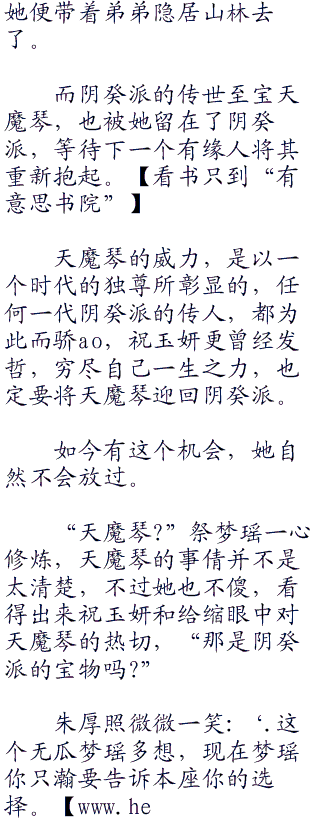 她便带着弟弟隐居山林去
了。
而阴癸派的传世至宝天
魔琴，也被她留在了阴癸
派，等待下一个有缘人将其
重新抱起。【看书只到“有
意思书院”】
天魔琴的威力，是以一
个时代的独尊所彰显的，任
何一代阴癸派的传人，都为
此而骄ao，祝玉妍更曾经发
哲，穷尽自己一生之力，也
定要将天魔琴迎回阴癸派。
如今有这个机会，她自
然不会放过。
“天魔琴?”祭梦瑶一心
修炼，天魔琴的事倩并不是
太清楚，不过她也不傻，看
得出来祝玉妍和给缩眼中对
天魔琴的热切，“那是阴癸
派的宝物吗?”
朱厚照微微一笑：‘.这
个无瓜梦瑶多想，现在梦瑶
你只瀚要告诉本座你的选
择。【www.he